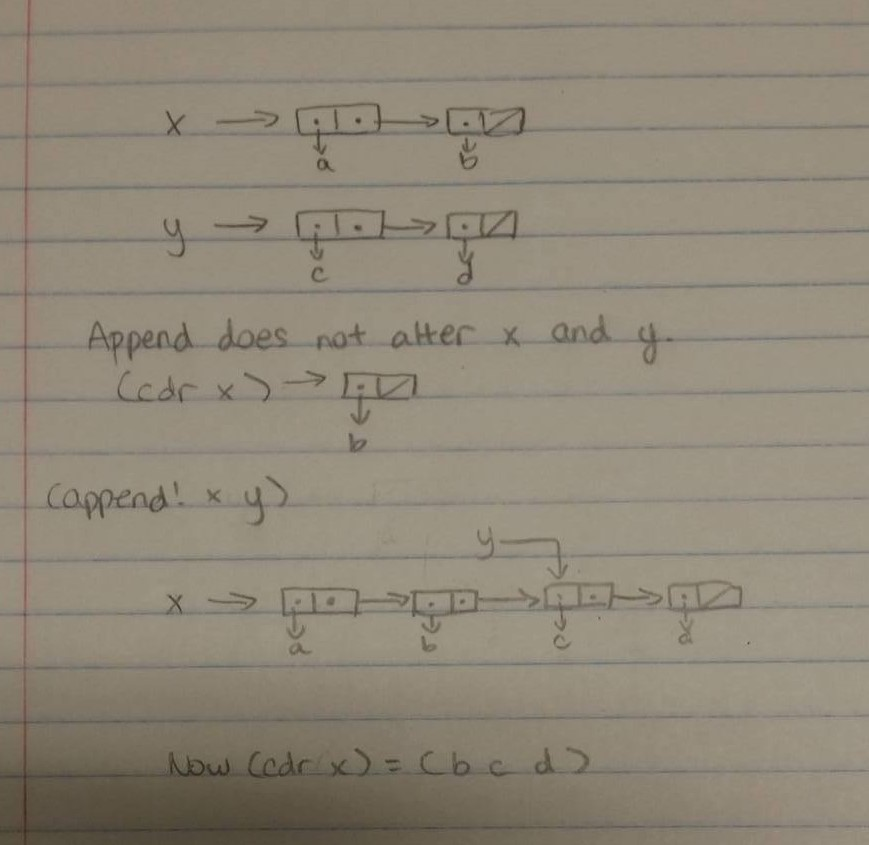 x
a b
y
c d
Append does not alter x and y.
(cdr x)
b
(append! x y)
y
x
a b c d
Now (cdr x) = (b c d)